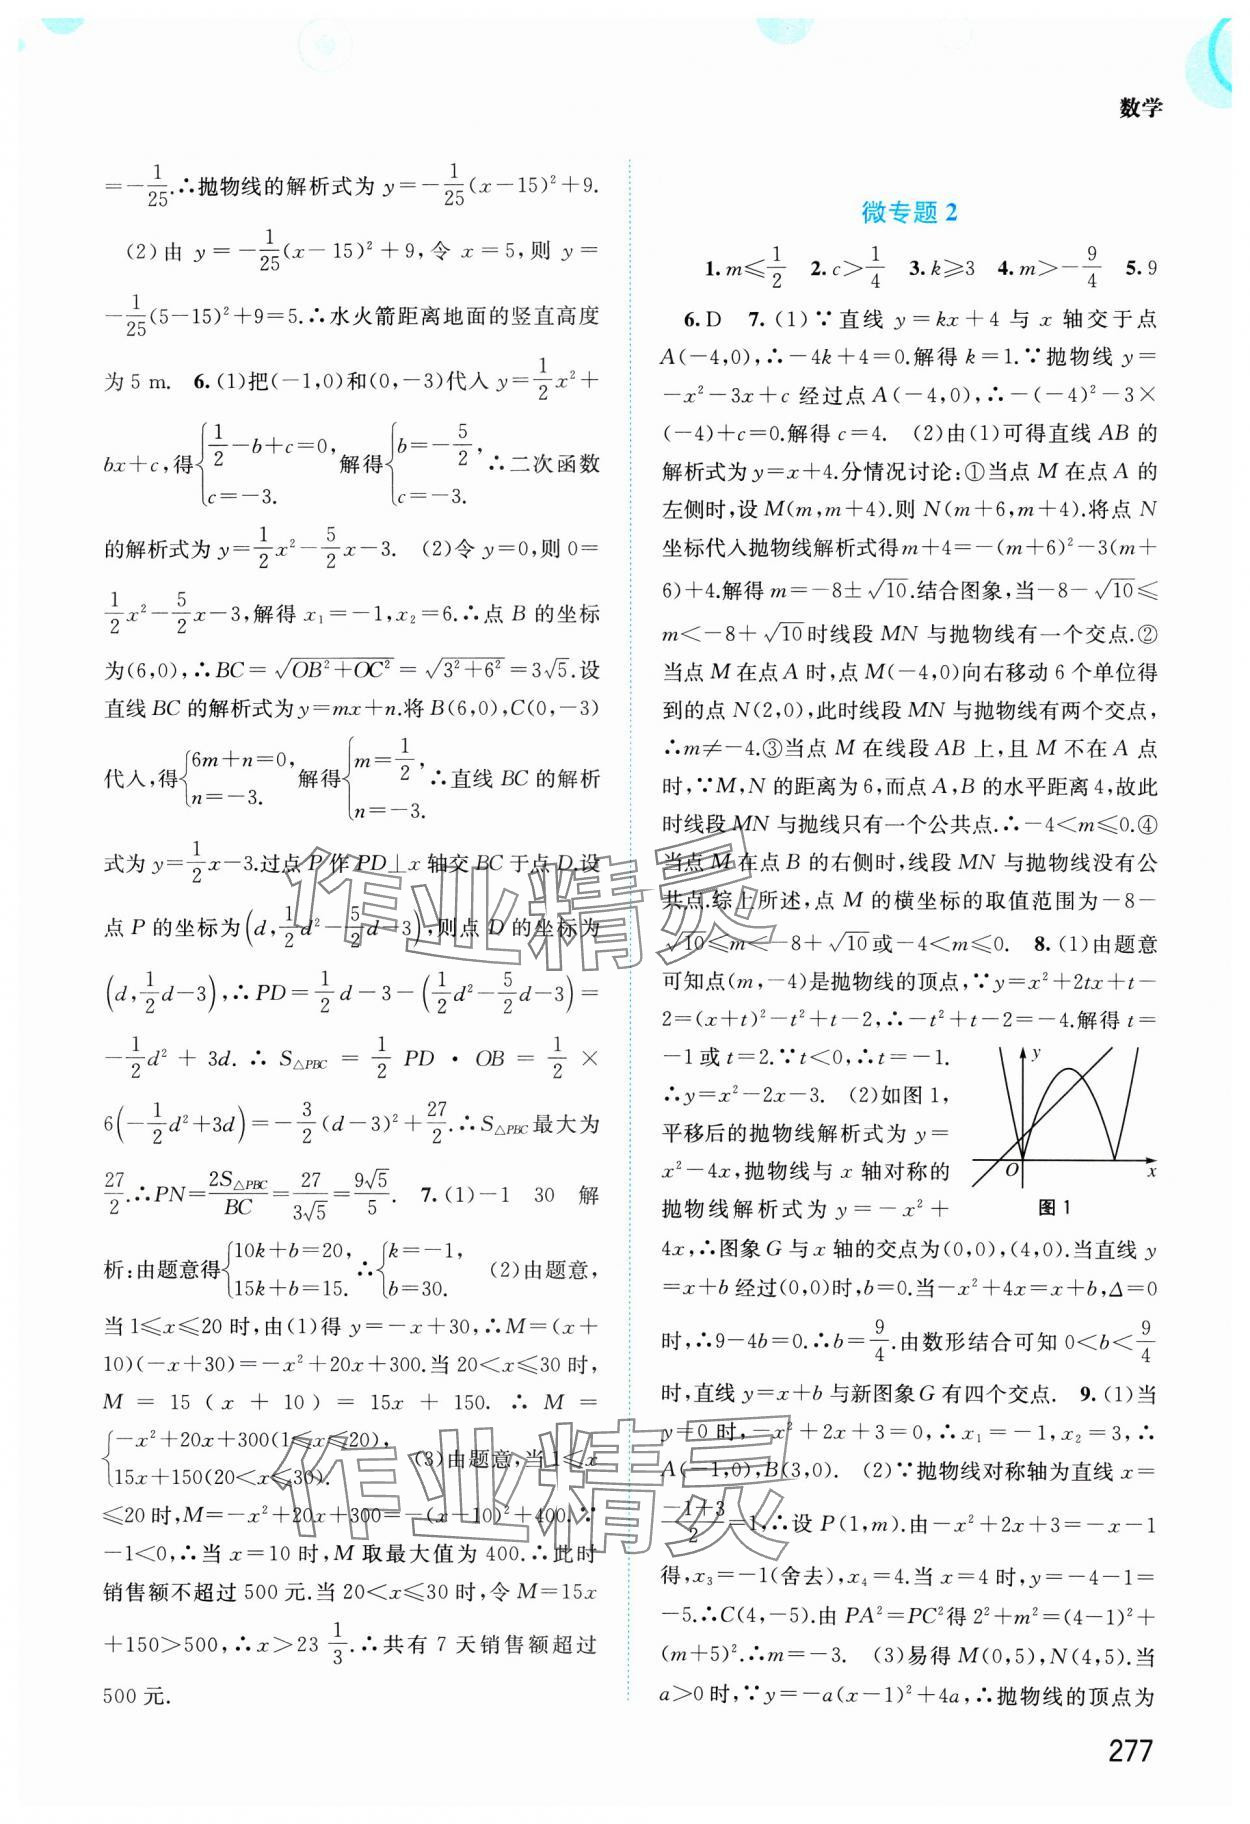 数学
=-1/25.∴抛物线的解析式为 y=-1/25(x-15)²+9.
(2)由 y=-1/25(x-15)²+9,令 x=5,则 y=
-1/25(5-15)²+9=5.∴水火箭距离地面的竖直高度
为 5 m. 6.(1)把(-1,0)和(0,-3)代入 y=1/2x²+
bx+c,得{1/2-b+c=0, c=-3. 解得{b=-5/2, c=-3. ∴二次函数
的解析式为 y=1/2x²-5/2x-3. (2)令 y=0,则 0=
1/2x²-5/2x-3,解得 x₁=-1,x₂=6.∴点 B 的坐标
为(6,0),∴BC=√(OB²+OC²)=√(3²+6²)=3√5.设
直线 BC 的解析式为 y=mx+n.将 B(6,0),C(0,-3)
代入,得{6m+n=0, n=-3. 解得{m=1/2, n=-3. ∴直线 BC 的解析
式为 y=1/2x-3.过点 P 作 PD⊥x 轴交 BC 于点 D.设
点 P 的坐标为(d,1/2d²-5/2d-3),则点 D 的坐标为
(d,1/2d-3),∴PD=1/2d-3-(1/2d²-5/2d-3)=
-1/2d²+3d.∴S△PBC=1/2PD·OB=1/2×
6(-1/2d²+3d)=-3/2(d-3)²+27/2.∴S△PBC最大为
27/2.∴PN=2S△PBC/BC=27/3√5=9√5/5. 7.(1)-1 30 解
析:由题意得{10k+b=20, 15k+b=15. ∴{k=-1, b=30. (2)由题意,
当 1≤x≤20 时,由(1)得 y=-x+30,∴M=(x+
10)(-x+30)=-x²+20x+300.当 20<x≤30 时,
M=15(x+10)=15x+150.∴M=
{-x²+20x+300(1≤x≤20), 15x+150(20<x≤30). (3)由题意,当 1≤x
≤20 时,M=-x²+20x+300=-(x-10)²+400.∵
-1<0,∴当 x=10 时,M 取最大值为 400.∴此时
销售额不超过 500 元.当 20<x≤30 时,令 M=15x
+150>500,∴x>23 1/3.∴共有 7 天销售额超过
500 元.
微专题 2
1. m≤1/2 2. c>1/4 3. k≥3 4. m>-9/4 5. 9
6. D 7.(1)∵直线 y=kx+4 与 x 轴交于点
A(-4,0),∴-4k+4=0.解得 k=1.∵抛物线 y=
-x²-3x+c 经过点 A(-4,0),∴-(-4)²-3×
(-4)+c=0.解得 c=4. (2)由(1)可得直线 AB 的
解析式为 y=x+4.分情况讨论:①当点 M 在点 A 的
左侧时,设 M(m,m+4).则 N(m+6,m+4).将点 N
坐标代入抛物线解析式得 m+4=-(m+6)²-3(m+
6)+4.解得 m=-8±√10.结合图象,当-8-√10≤
m<-8+√10时线段 MN 与抛物线有一个交点.②
当点 M 在点 A 时,点 M(-4,0)向右移动 6 个单位得
到的点 N(2,0),此时线段 MN 与抛物线有两个交点,
∴m≠-4.③当点 M 在线段 AB 上,且 M 不在 A 点
时,∵M,N 的距离为 6,而点 A,B 的水平距离 4,故此
时线段 MN 与抛线只有一个公共点.∴-4<m≤0.④
当点 M 在点 B 的右侧时,线段 MN 与抛物线没有公
共点.综上所述,点 M 的横坐标的取值范围为-8-
√10≤m<-8+√10或-4<m≤0. 8.(1)由题意
可知点(m,-4)是抛物线的顶点,∵y=x²+2tx+t-
2=(x+t)²-t²+t-2,∴-t²+t-2=-4.解得 t=
-1 或 t=2.∵t<0,∴t=-1.
∴y=x²-2x-3. (2)如图 1,
平移后的抛物线解析式为 y=
x²-4x,抛物线与 x 轴对称的
抛物线解析式为 y=-x²+
y
O
x
图 1
4x,∴图象 G 与 x 轴的交点为(0,0),(4,0).当直线 y
=x+b 经过(0,0)时,b=0.当-x²+4x=x+b,Δ=0
时,∴9-4b=0.∴b=9/4.由数形结合可知 0<b<9/4
时,直线 y=x+b 与新图象 G 有四个交点. 9.(1)当
y=0 时,-x²+2x+3=0,∴x₁=-1,x₂=3,∴
A(-1,0),B(3,0). (2)∵抛物线对称轴为直线 x=
-1+3/2=1,∴设 P(1,m).由-x²+2x+3=-x-1
得,x₃=-1(舍去),x₄=4.当 x=4 时,y=-4-1=
-5.∴C(4,-5).由 PA²=PC²得 2²+m²=(4-1)²+
(m+5)².∴m=-3. (3)易得 M(0,5),N(4,5).当
a>0 时,∵y=-a(x-1)²+4a,∴抛物线的顶点为
277
作业精灵
作业精灵